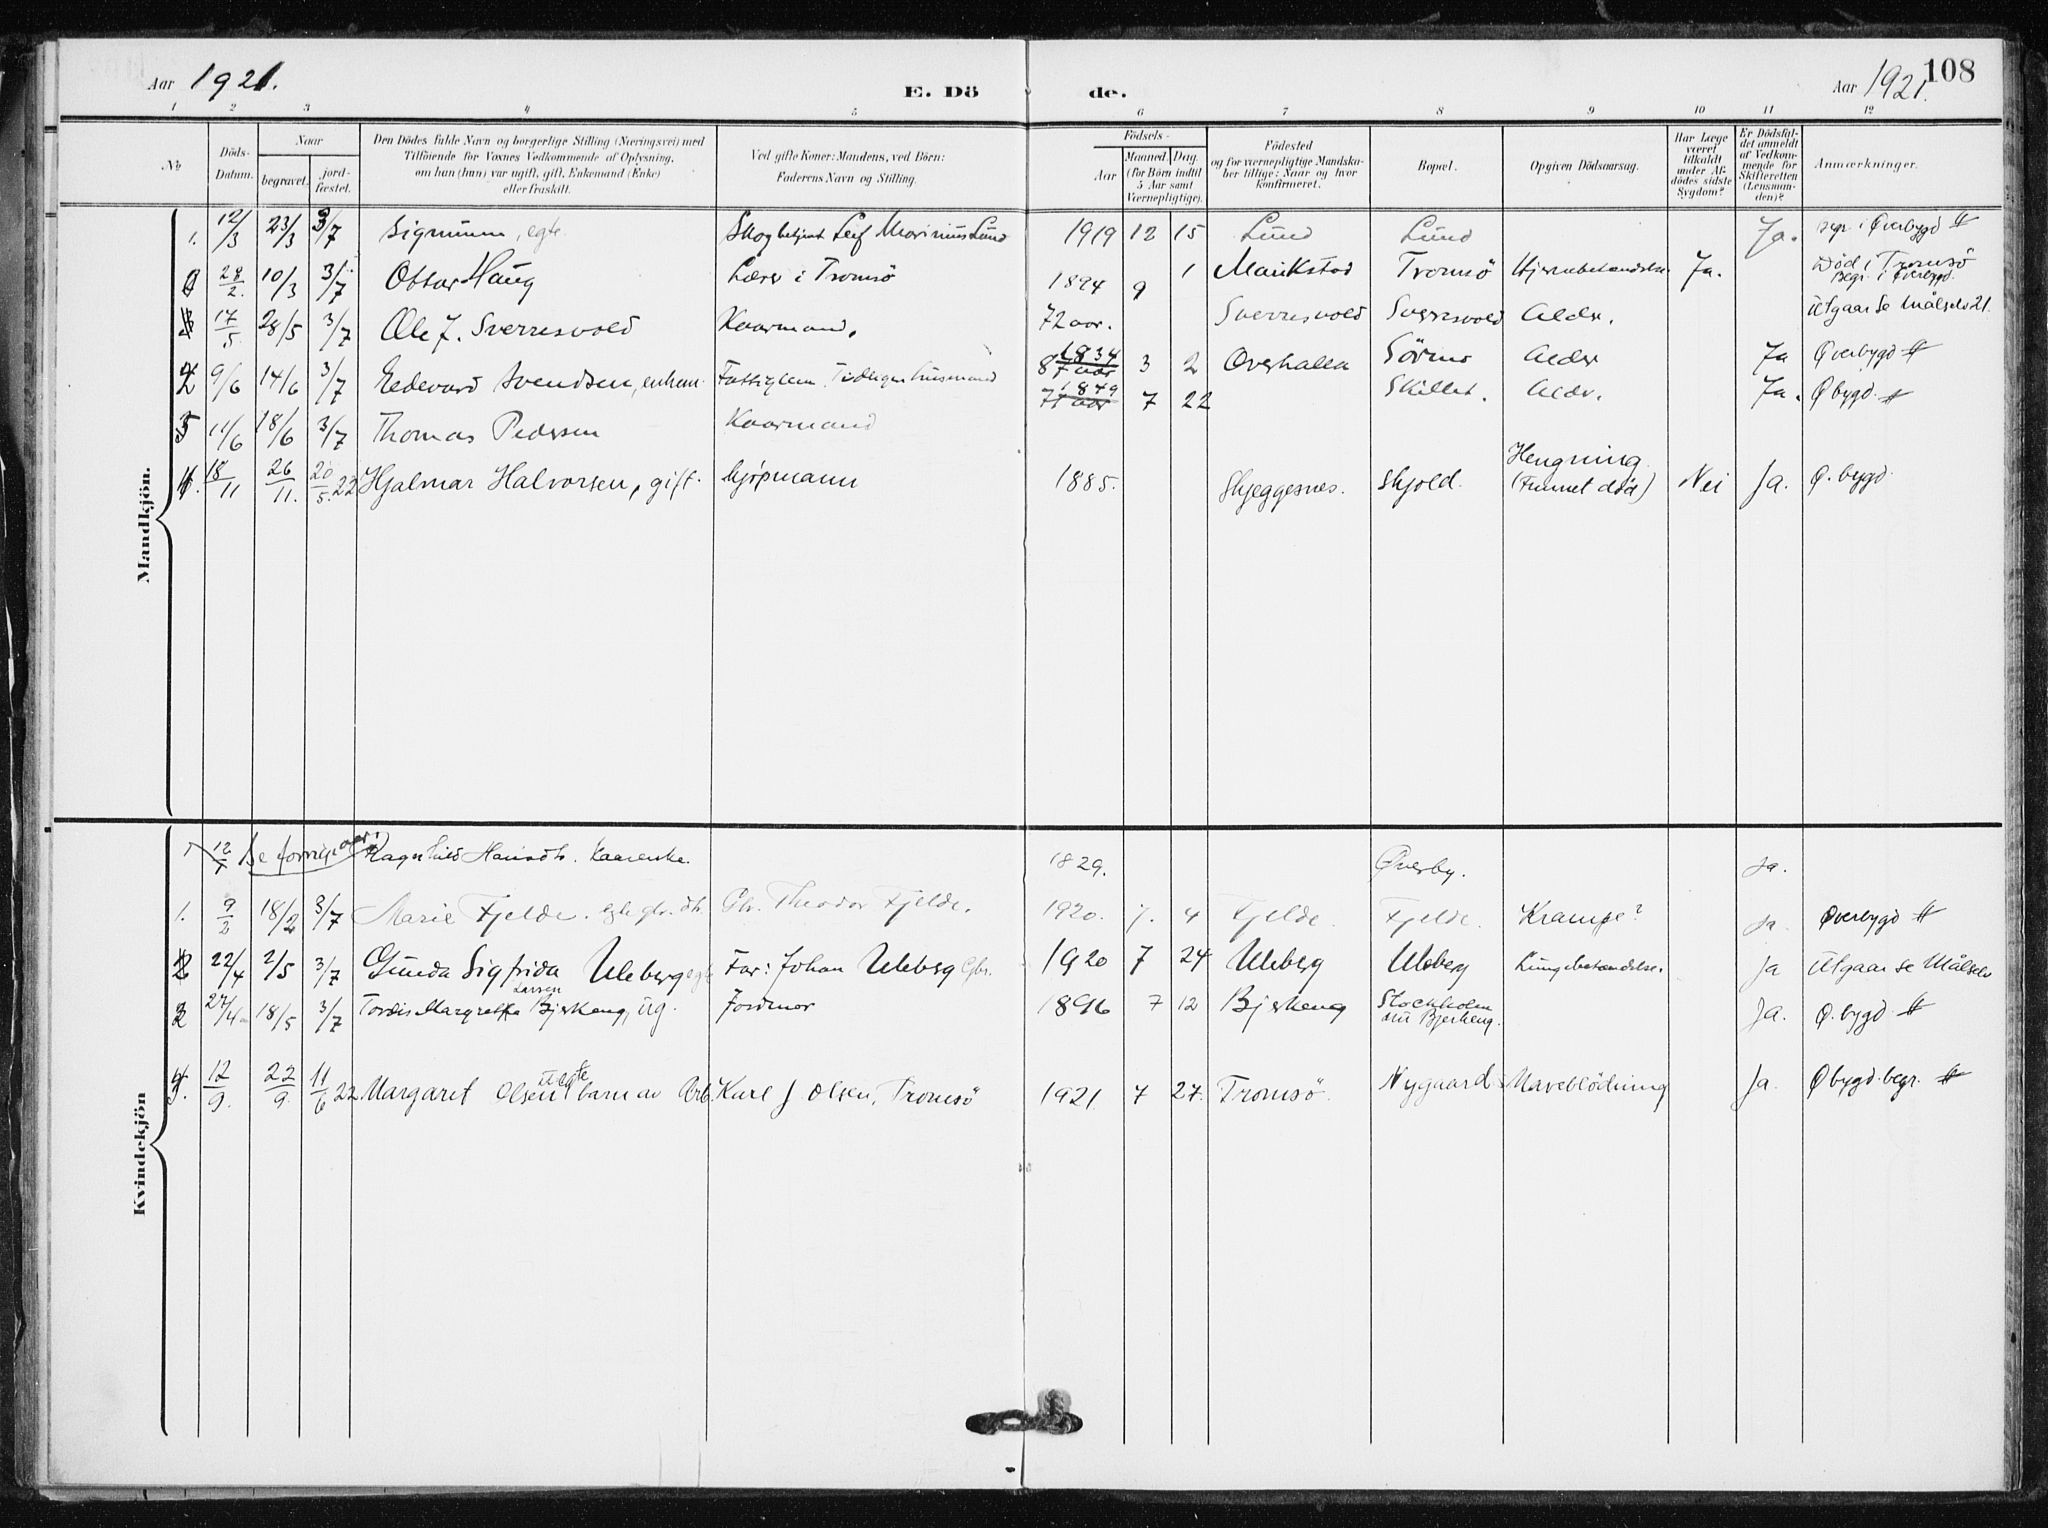 Aar 1921.
E. Dö
de.
Aar 1921.
108
1 2 3 4 5 6 7 8 9 10 11 12
No
Döds-Datum.
Naar
begravet.
jord-fæstet.
Den Dödes fulde Navn og borgerlige Stilling (Næringsvei) med
Tilföiende for Voxnes Vedkommende af Oplysning,
om han (hun) var ugift, gift, Enkemand (Enke)
eller fraskilt.
Ved gifte Koner: Mandens, ved Börn:
Faderens Navn og Stilling.
Födsels-
Aar
Maaned. Dag.
(for Börn indtil
5 Aar samt
Værnepligtige).
Födested
og for værnepligtige Mandska-
ber tillige: Naar og hvor
konfirmeret.
Bopæl.
Opgiven Dödsaarsag.
Har Læge
været
tilkaldt
under Af-
dödes sidste
Sygdom?
Er Dödsfal-
det anmeldt
af Vedkom-
mende for
Skifteretten
(Lensman-
den)?
Anmærkninger.
Mandkjön.
1. 12/3 23/3 3/7 Sigmunn, egte. Skogbetjent Leif Marinius Lund 1919 12 15 Lund Lund Ja. begr. i Øverbygd #
28/2. 10/3 3/7 Ottar Haug Lærer i Tromsö 1894 9 1 Maukstad Tromsö Hjernebetændelse Ja. Död i Tromsö
Begr. i Øverbygd.
17/5. 28/5 3/7 Ole J. Sverresvold Kaarmand. 72 aar. Sverresvold Sverresvold Alder. Utgaar se Målselv 21.
2 9/6 14/6 3/7 Eedevard Svendsen, enkem. Fattiglem. Tidligere husmand 1834 87 aar 3 2 Overhalla Sörmo Alder Ja Øverbygd #
3 11/6 18/6 3/7 Thomas Pedersen Kaarmand 1849 71 aar 7 22 Skillet. Alder. Ja. Øbygd. #
4. 18/11 26/11. 20/5. 22 Hjalmar Halvorsen, gift. kjøpmann 1885. Skjeggesnes. Skjold. Hengning
(Funnet død) Nei Ja. Ø. bygd.
Kvindekjön
1 12/1 Se forrige aar! Ragnhild Hansdtr. Kaarenke. 1829. Øverby. Ja.
1. 9/2 18/2 3/7 Marie Fjelde. egte gbr. dtr. Gbr. Theodor Fjelde. 1920. 7. 4 Fjelde. Fjelde. Krampe? Ja. Øverbygd #
2 22/4 2/5 3/7 Gunda Sigfrida Uleberg egte Far: Johan Uleberg Gbr. 1920 7 24 Uleberg Uleberg Lungebetændelse. Ja Utgaar se Målselv
2 27/4 18/5 3/7 Tordis Margrethe Larsen Bjerkeng, ug. Jordmor 1896 7 12 Bjerkeng Stockholm
nu Bjerkeng. Ja. Ø. bygd #
3. 12/9. 22/9. 11/6 22 Margaret Olsen uegte barn av Arb. Karl J Olsen, Tromsö 1921. 7 27. Tromsö. Nygaard Maveblödning Ja. Øbygd. begr. #